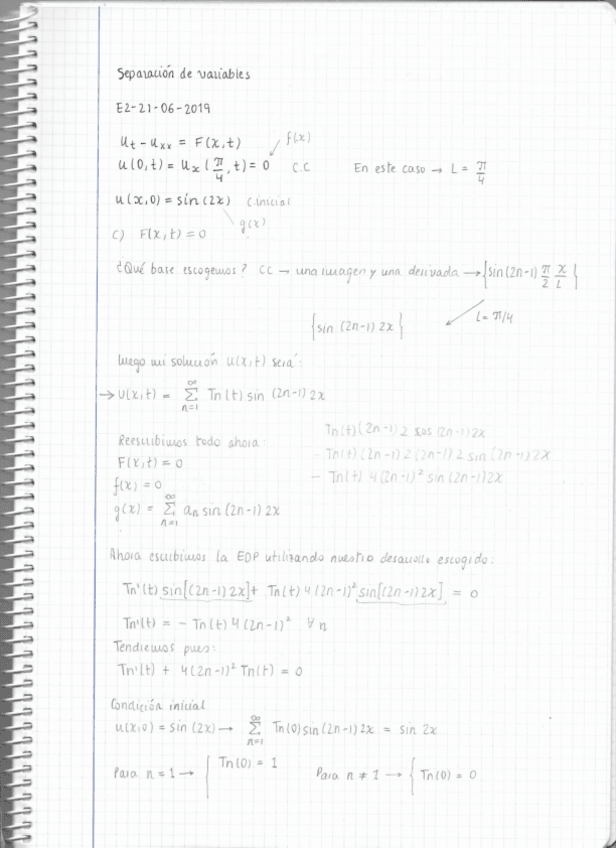 Separación de variables
E2-21-06-2019
u_t - u_xx = F(x,t)
f(x)
u(0,t) = u_x(π/4, t) = 0 C.C En este caso → L = π/4
u(x,0) = sin(2x) C.inicial
g(x)
c) F(x,t) = 0
¿Qué base escogemos? CC → una imagen y una derivada → {sin(2n-1) π/2 x/L}
L = π/4
{sin (2n-1) 2x}
Luego mi solución u(x,t) será:
→ U(x,t) = ∑_{n=1}^∞ Tn(t) sin (2n-1) 2x
Tn(t)(2n-1) 2 cos (2n-1) 2x
Reescribimos todo ahora:
- Tn(t) (2n-1) 2 (2n-1) 2 sin (2n-1) 2x
F(x,t) = 0
- Tn(t) 4(2n-1)² sin (2n-1) 2x
f(x) = 0
g(x) = ∑_{n=1}^∞ an sin (2n-1) 2x
Ahora escribimos la EDP utilizando nuestro desarrollo escogido:
Tn'(t) sin[(2n-1) 2x] + Tn(t) 4 (2n-1)² sin[(2n-1) 2x] = 0
Tn'(t) = - Tn(t) 4 (2n-1)² ∀n
Tendremos pues:
Tn'(t) + 4(2n-1)² Tn(t) = 0
Condición inicial
u(x,0) = sin (2x) → ∑_{n=1}^∞ Tn(0) sin (2n-1) 2x = sin 2x
Para n = 1 → { Tn(0) = 1 Para n ≠ 1 → { Tn(0) = 0